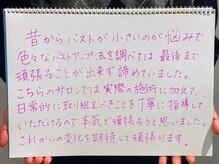 昔からバストが小さいのが悩みで
色々なバストアップ法を調べては、最後まで
頑張ることが出来ず諦めていました。
こちらのサロンでは実際の施術に加えて
日常的に取り組むべきことを丁寧に指導して
いただけるので本気で頑張ろうと思いました。
これからの変化を期待して頑張ります。